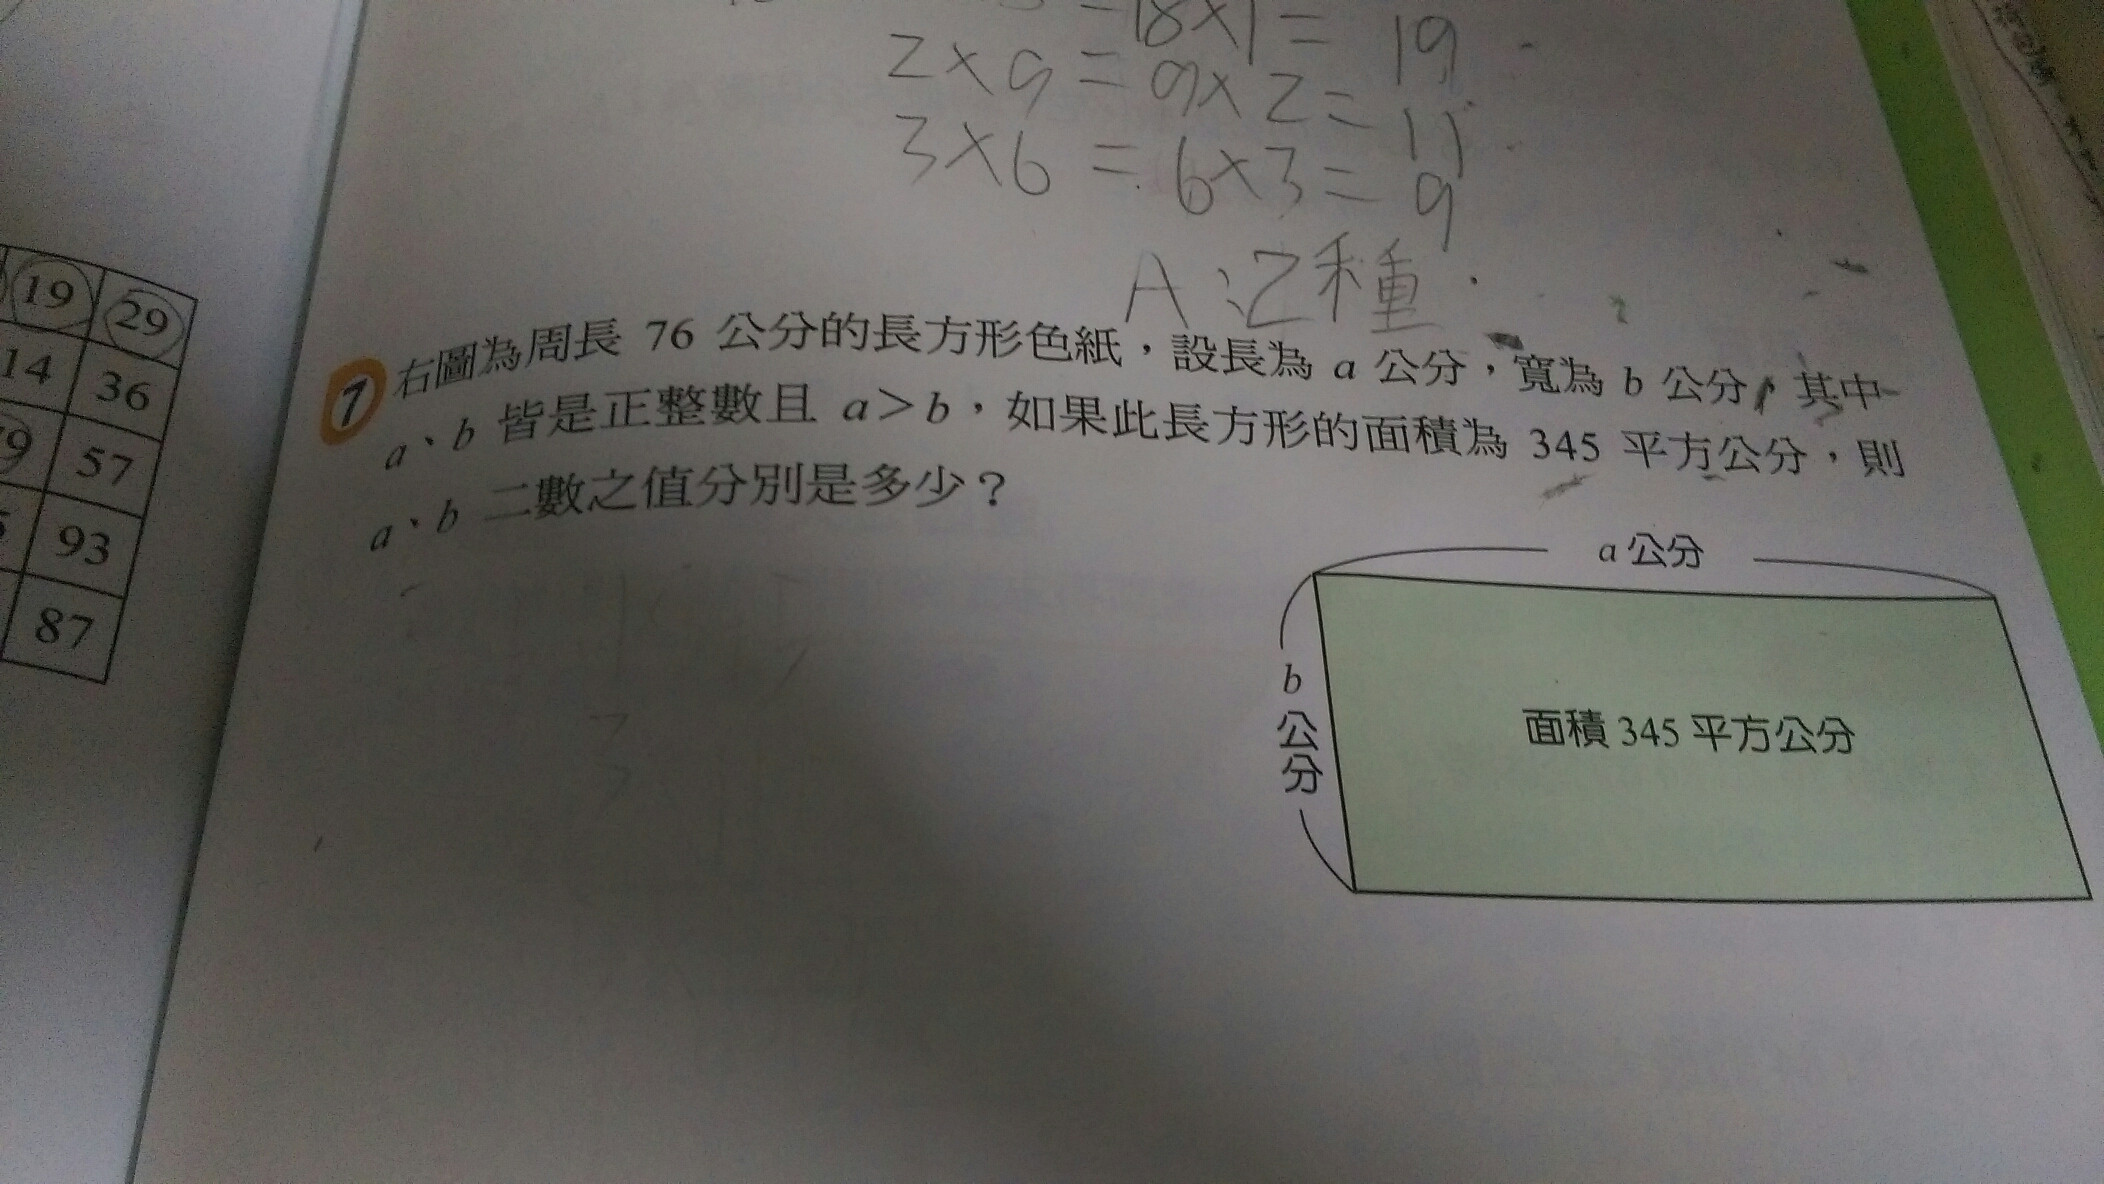 =18×1= 19
2×9=9×2=11
3×6=6×3=9
A:2種
19 29
14 36
9 57
93
87
7 右圖為周長 76 公分的長方形色紙,設長為 a 公分,寬為 b 公分,其中
a、b 皆是正整數且 a>b,如果此長方形的面積為 345 平方公分,則
a、b 二數之值分別是多少?
a 公分
b 公分
面積 345 平方公分